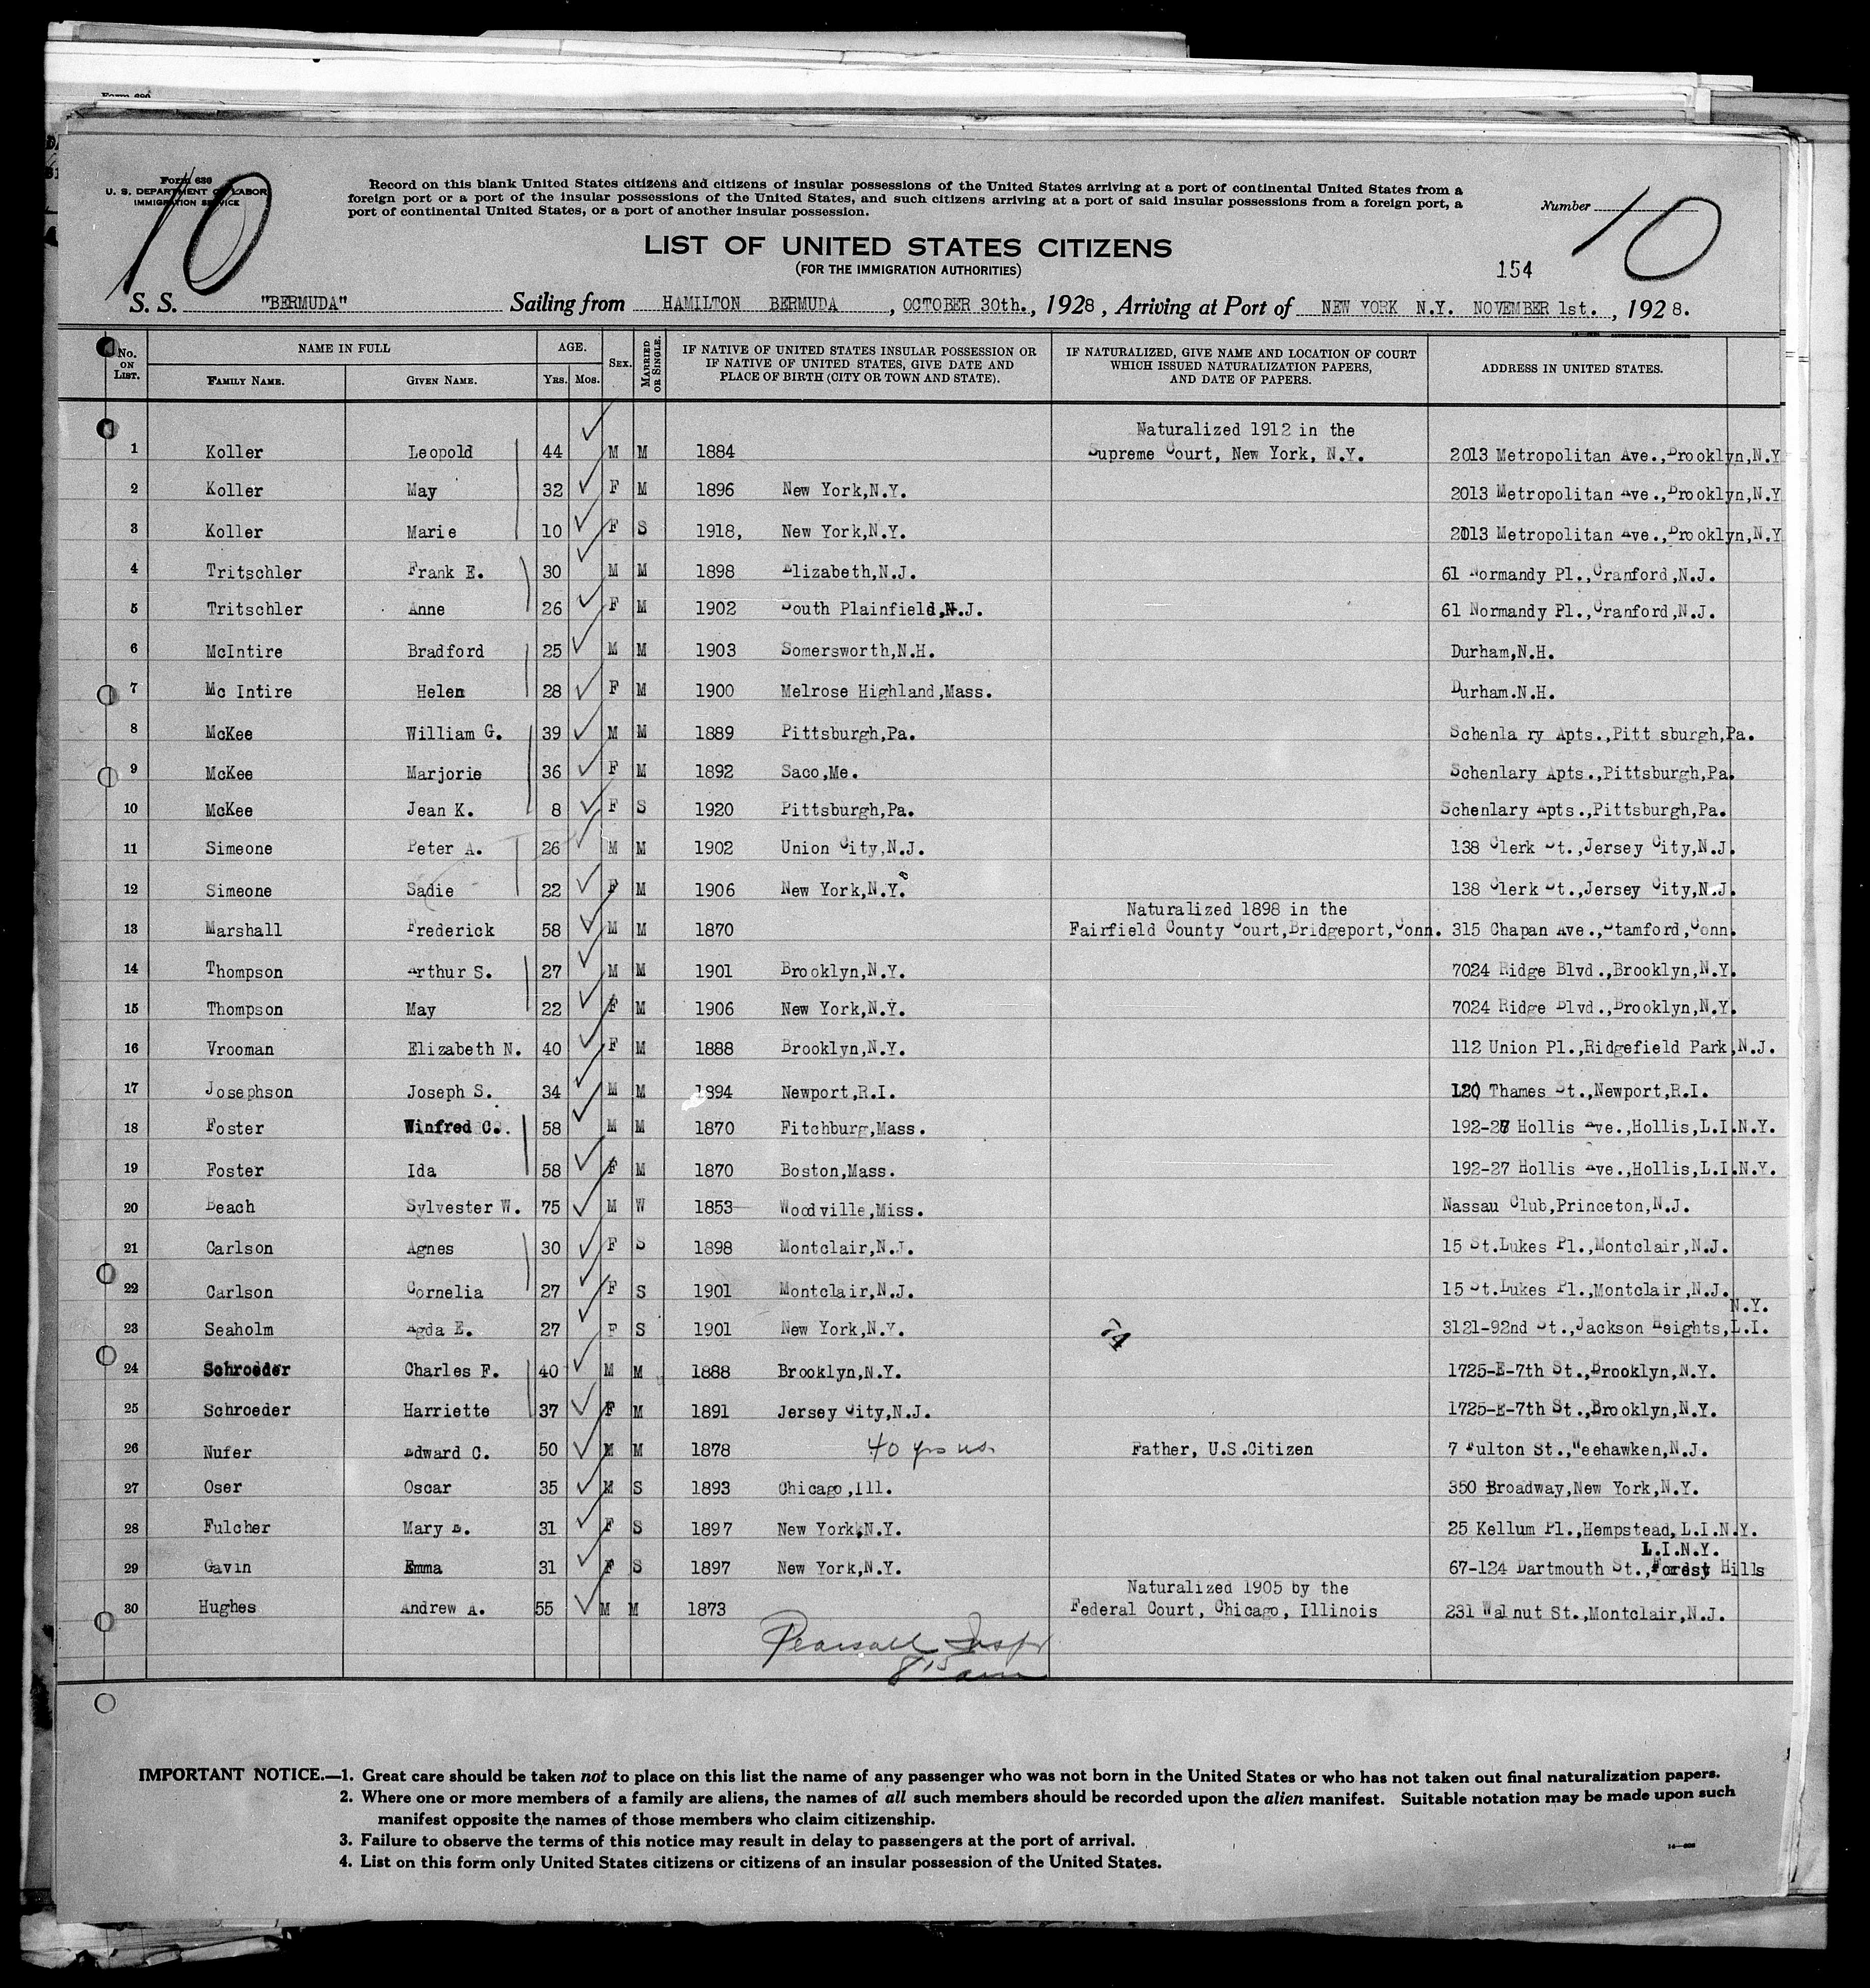 Form 630
U. S. DEPARTMENT OF LABOR
IMMIGRATION SERVICE
10
Record on this blank United States citizens and citizens of insular possessions of the United States arriving at a port of continental United States from a
foreign port or a port of the insular possessions of the United States, and such citizens arriving at a port of said insular possessions from a foreign port, a
port of continental United States, or a port of another insular possession.
Number 10
LIST OF UNITED STATES CITIZENS
(FOR THE IMMIGRATION AUTHORITIES)
154
S. S. "BERMUDA" Sailing from HAMILTON BERMUDA, OCTOBER 30th., 1928, Arriving at Port of NEW YORK N.Y. NOVEMBER 1st., 1928.
No. ON LIST. NAME IN FULL FAMILY NAME. GIVEN NAME. AGE. YRS. MOS. SEX. MARRIED OR SINGLE. IF NATIVE OF UNITED STATES INSULAR POSSESSION OR IF NATIVE OF UNITED STATES, GIVE DATE AND PLACE OF BIRTH (CITY OR TOWN AND STATE). IF NATURALIZED, GIVE NAME AND LOCATION OF COURT WHICH ISSUED NATURALIZATION PAPERS, AND DATE OF PAPERS. ADDRESS IN UNITED STATES.
Naturalized 1912 in the
1 Koller Leopold 44 M M 1884 Supreme Court, New York, N.Y. 2013 Metropolitan Ave.,Brooklyn,N.Y
2 Koller May 32 F M 1896 New York,N.Y. 2013 Metropolitan Ave.,Brooklyn,N.Y
3 Koller Marie 10 F S 1918, New York,N.Y. 2013 Metropolitan Ave.,Brooklyn,N.Y
4 Tritschler Frank E. 30 M M 1898 Elizabeth,N.J. 61 Normandy Pl.,Cranford,N.J.
5 Tritschler Anne 26 F M 1902 South Plainfield,N.J. 61 Normandy Pl.,Cranford,N.J.
6 McIntire Bradford 25 M M 1903 Somersworth,N.H. Durham,N.H.
7 Mc Intire Helen 28 F M 1900 Melrose Highland,Mass. Durham.N.H.
8 McKee William G. 39 M M 1889 Pittsburgh,Pa. Schenla ry Apts.,Pitt sburgh,Pa.
9 McKee Marjorie 36 F M 1892 Saco,Me. Schenlary Apts.,Pittsburgh,Pa.
10 McKee Jean K. 8 F S 1920 Pittsburgh,Pa. Schenlary Apts.,Pittsburgh,Pa.
11 Simeone Peter A. 26 M M 1902 Union City,N.J. 138 Clerk St.,Jersey City,N.J.
12 Simeone Sadie 22 F M 1906 New York,N.Y. 138 Clerk St.,Jersey City,N.J.
Naturalized 1898 in the
13 Marshall Frederick 58 M M 1870 Fairfield County Court,Bridgeport,Conn. 315 Chapan Ave.,Stamford,Conn.
14 Thompson Arthur S. 27 M M 1901 Brooklyn,N.Y. 7024 Ridge Blvd.,Brooklyn,N.Y.
15 Thompson May 22 F M 1906 New York,N.Y. 7024 Ridge Blvd.,Brooklyn,N.Y.
16 Vrooman Elizabeth N. 40 F M 1888 Brooklyn,N.Y. 112 Union Pl.,Ridgefield Park,N.J.
17 Josephson Joseph S. 34 M M 1894 Newport,R.I. 120 Thames St.,Newport,R.I.
18 Foster Winfred C. 58 M M 1870 Fitchburg,Mass. 192-27 Hollis Ave.,Hollis,L.I.N.Y.
19 Foster Ida 58 F M 1870 Boston,Mass. 192-27 Hollis Ave.,Hollis,L.I.N.Y.
20 Beach Sylvester W. 75 M W 1853 Woodville,Miss. Nassau Club,Princeton,N.J.
21 Carlson Agnes 30 F S 1898 Montclair,N.J. 15 St.Lukes Pl.,Montclair,N.J.
22 Carlson Cornelia 27 F S 1901 Montclair,N.J. 15 St.Lukes Pl.,Montclair,N.J.
N.Y.
23 Seaholm Agda E. 27 F S 1901 New York,N.Y. 3121-92nd St.,Jackson Heights,L.I.
24 Schroeder Charles F. 40 M M 1888 Brooklyn,N.Y. 1725-E-7th St.,Brooklyn,N.Y.
25 Schroeder Harriette 37 F M 1891 Jersey City,N.J. 1725-E-7th St.,Brooklyn,N.Y.
26 Nufer Edward C. 50 M M 1878 40 yrs us. Father, U.S.Citizen 7 Fulton St.,Weehawken,N.J.
27 Oser Oscar 35 M S 1893 Chicago,Ill. 350 Broadway,New York,N.Y.
28 Fulcher Mary 31 F S 1897 New York,N.Y. 25 Kellum Pl.,Hempstead,L.I.N.Y.
L.I.N.Y.
29 Gavin Emma 31 F S 1897 New York,N.Y. 67-124 Dartmouth St.,Forest Hills
Naturalized 1905 by the
30 Hughes Andrew A. 55 M M 1873 Federal Court, Chicago, Illinois 231 Walnut St.,Montclair,N.J.
Pearsall Inspr
8 15 am
IMPORTANT NOTICE.—1. Great care should be taken not to place on this list the name of any passenger who was not born in the United States or who has not taken out final naturalization papers.
2. Where one or more members of a family are aliens, the names of all such members should be recorded upon the alien manifest. Suitable notation may be made upon such
manifest opposite the names of those members who claim citizenship.
3. Failure to observe the terms of this notice may result in delay to passengers at the port of arrival.
4. List on this form only United States citizens or citizens of an insular possession of the United States.